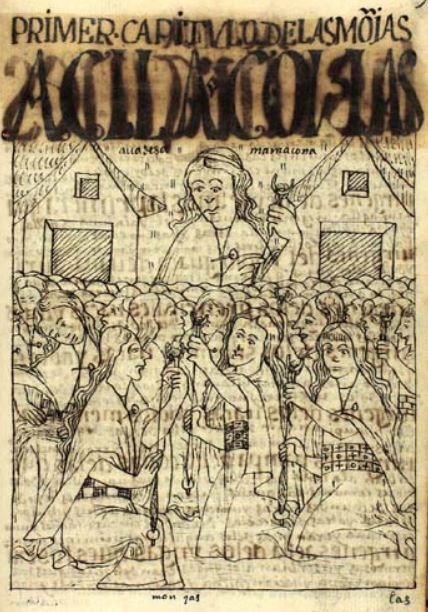 PRIMER·CAPITVLO·DELASMÕIAS
ACLLA CONAS
auadesa mamacona
mon jas
las